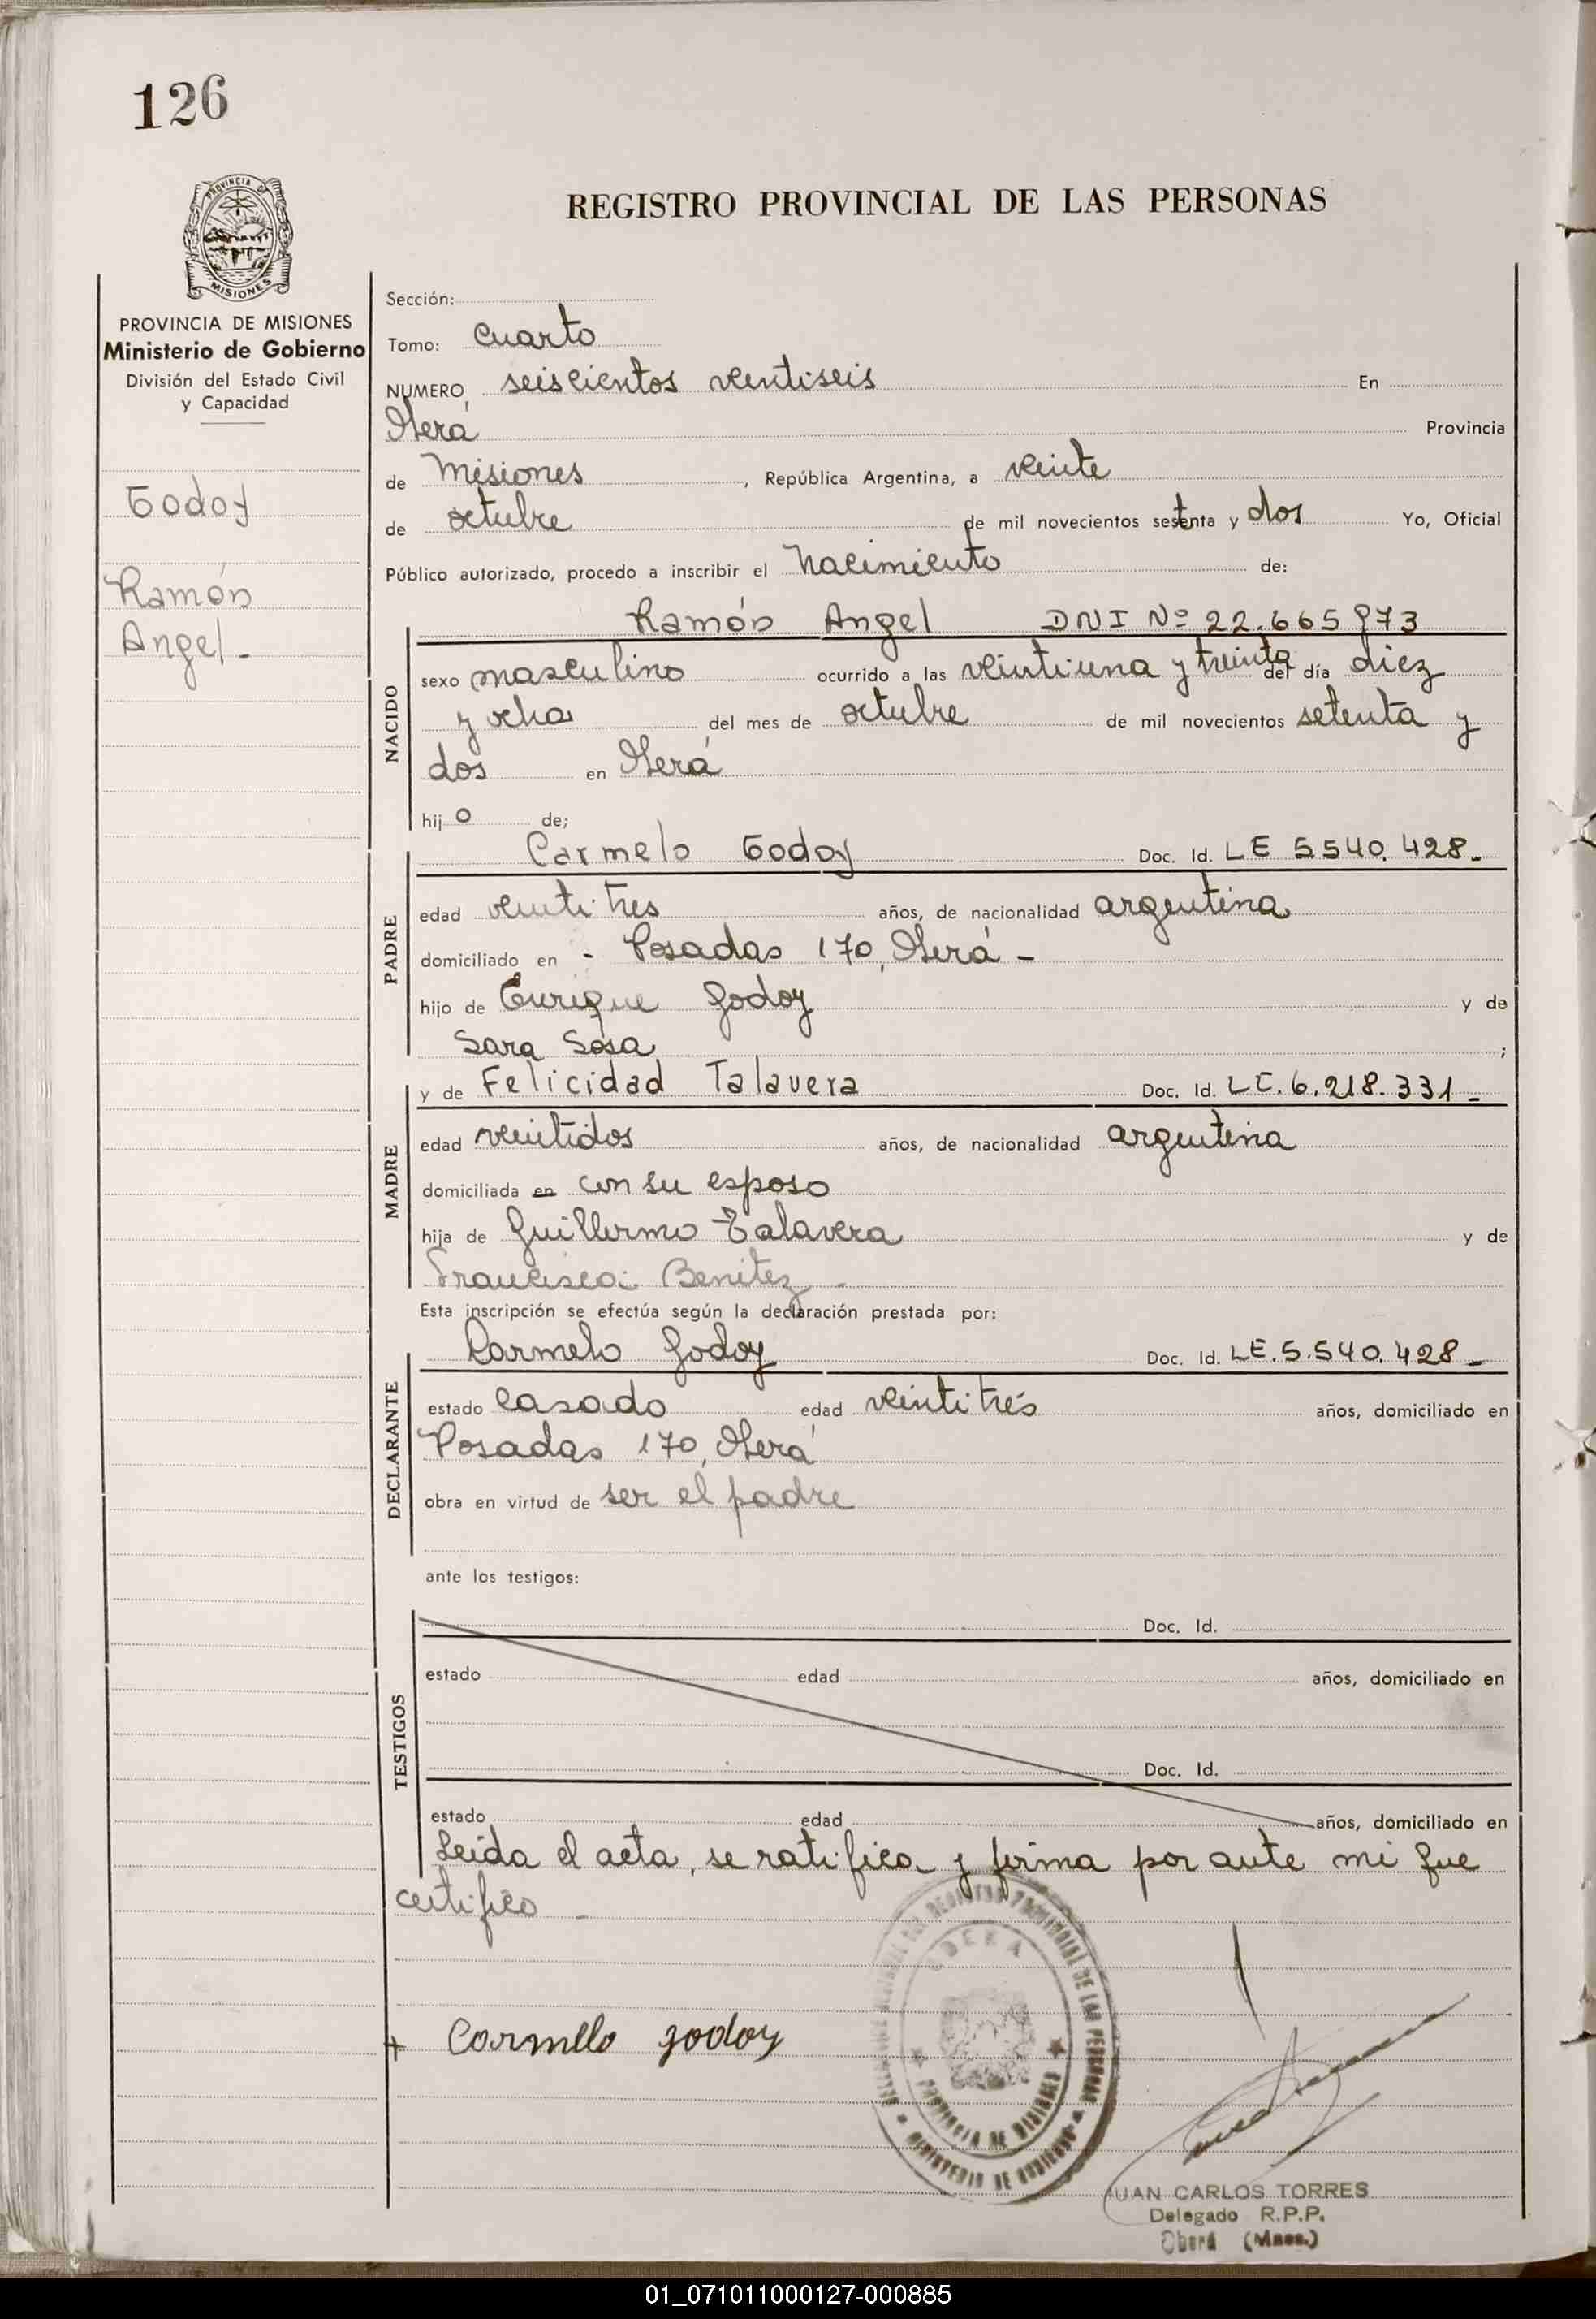 126
PROVINCIA DE
MISIONES
REGISTRO PROVINCIAL DE LAS PERSONAS
PROVINCIA DE MISIONES
Ministerio de Gobierno
División del Estado Civil
y Capacidad
Godoy
Ramón
Angel -
Sección:
Tomo: Cuarto
NUMERO seiscientos veintiseis En
Oberá Provincia
de Misiones, República Argentina, a veinte
de octubre de mil novecientos setenta y dos Yo, Oficial
Público autorizado, procedo a inscribir el Nacimiento de:
NACIDO
Ramón Angel DNI Nº 22.665.973
sexo masculino ocurrido a las veintiuna y treinta del día diez
y ocho del mes de octubre de mil novecientos setenta y
dos en Oberá
hijo de;
PADRE
Carmelo Godoy Doc. Id. LE 5540.428-
edad veintitres años, de nacionalidad argentina
domiciliado en - Posadas 170, Oberá -
hijo de Enrique Godoy y de
Sara Sosa ;
MADRE
y de Felicidad Talavera Doc. Id. LC.6.218.331-
edad veintidos años, de nacionalidad argentina
domiciliada en con su esposo
hija de Guillermo Talavera y de
Francisca Benitez -
Esta inscripción se efectúa según la declaración prestada por:
DECLARANTE
Carmelo Godoy Doc. Id. LE.5.540.428-
estado casado edad veintitrés años, domiciliado en
Posadas 170, Oberá
obra en virtud de ser el padre
ante los testigos:
TESTIGOS
Doc. Id.
estado edad años, domiciliado en
Doc. Id.
estado edad años, domiciliado en
Leida el acta, se ratifica y firma por ante mi que
certifico -
+ Carmelo Godoy
REGISTRO PROVINCIAL DE LAS PERSONAS
OBERA
PROVINCIA DE MISIONES
MINISTERIO DE GOBIERNO
JUAN CARLOS TORRES
Delegado R.P.P.
Oberá (Mnes.)
01_071011000127-000885